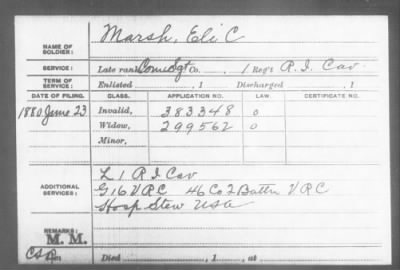 NAME OF SOLDIER: Marsh, Eli C
SERVICE: Late rank Com Sgt Co. , 1 Reg't R. I. Cav.
TERM OF SERVICE: Enlisted , 1 Discharged , 1
DATE OF FILING. CLASS. APPLICATION NO. LAW. CERTIFICATE NO.
1880 June 23 Invalid, 383348 o
Widow, 299562 o
Minor,
ADDITIONAL SERVICES: L 1 R I Cav
G 16 V R C 46 Co 2 Battn V R C
Hosp Stew USA
REMARKS:
M. M.
Died , 1 , at